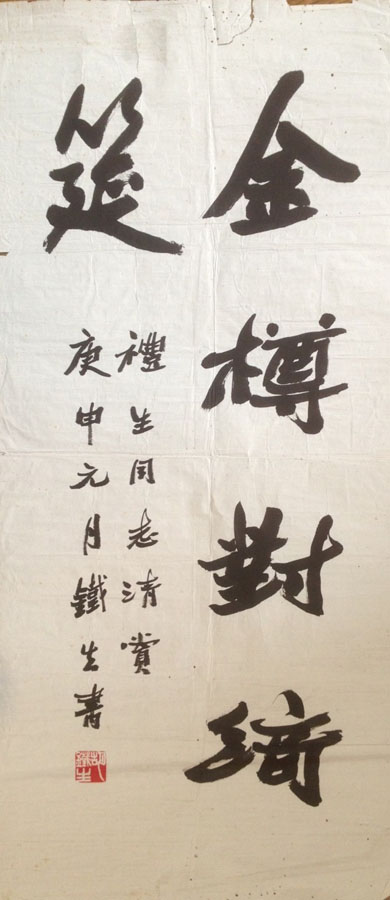 金樽對綺
筵
禮生同志清賞
庚申元月鐵生書
胡鐵生